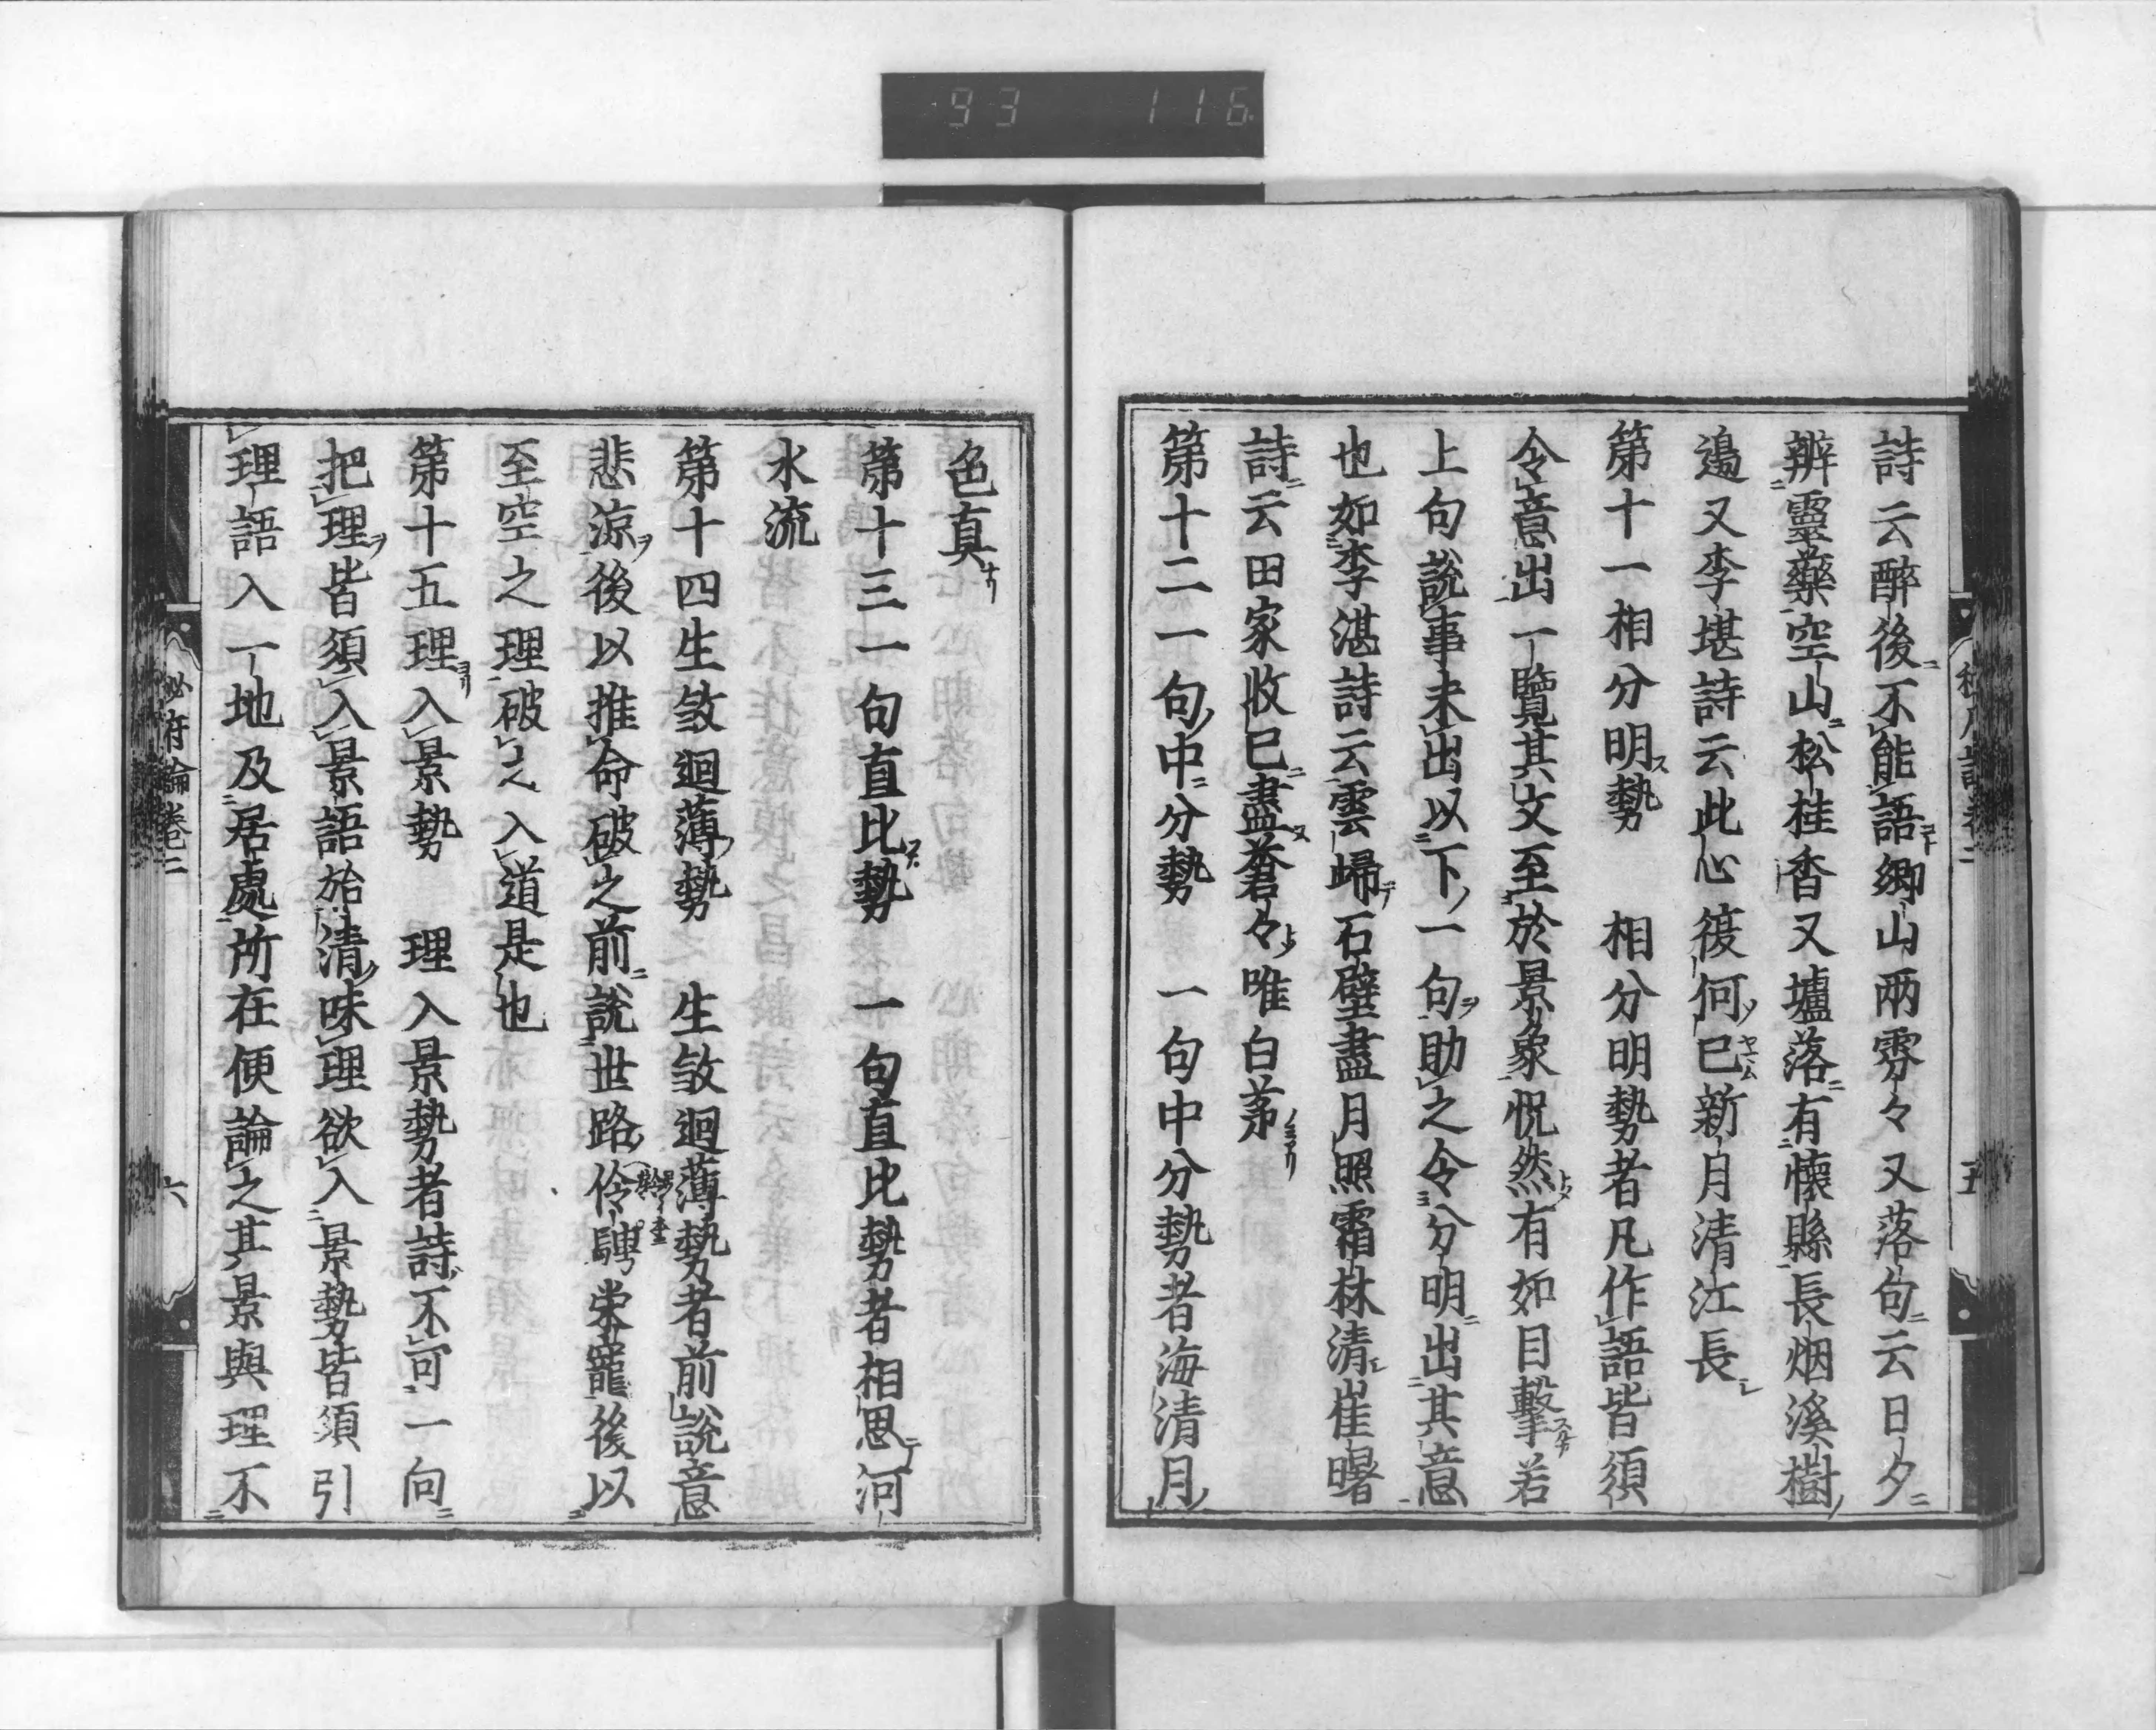 93 116
詩云醉後不能語鄉山雨雰々又落句云日夕
辨靈藥空山松桂香又墟落有懷縣長烟溪樹
邊又李堪詩云此心復何已新月清江長
第十一相分明勢　相分明勢者凡作語皆須
令意出一覽其文至於景象怳然有如目擊若
上句說事未出以下一句助之令分明出其意
也如李湛詩云雲歸石壁盡月照霜林清崔曙
詩云田家收已盡蒼々唯白茅
第十二一句中分勢　一句中分勢者海清月
色真
第十三一句直比勢　一句直比勢者相思河
水流
第十四生敓迴薄勢　生敓迴薄勢者前說意
悲涼後以推命破之前說世路伶騁栄寵後以
至空之理破之入道是也
第十五理入景勢　理入景勢者詩不可一向
把理皆須入景語始清味理欲入景勢皆須引
理語入一地及居處所在便論之其景與理不
秘府論卷二　六